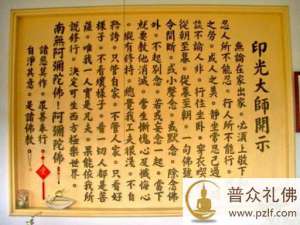 印光大師開示
無論在家出家。必須上敬下和。
忍人所不能忍。行人所不能行。代人
之勞。成人之美。靜坐常思己過。閒
談不論人非。行住坐臥。穿衣吃飯。
從朝至暮。從暮至朝。一句佛號。不
令間斷。或小聲念。或默念。除念佛
外。不起別念。若或妄念一起。當下
就要教他消滅。常生慚愧心及懺悔
心。縱有修持。總覺我工夫很淺。不自
矜誇。只管自家。不管人家。只看好
樣子。不看壞樣子。看一切人都是菩
薩。唯我一人實是凡夫。果能依我所
說修行。決定可生西方極樂世界。
南無阿彌陀佛!阿彌陀佛!
諸惡莫作。眾善奉行。
自淨其意。是諸佛教。
普众礼佛
www.pzlf.com